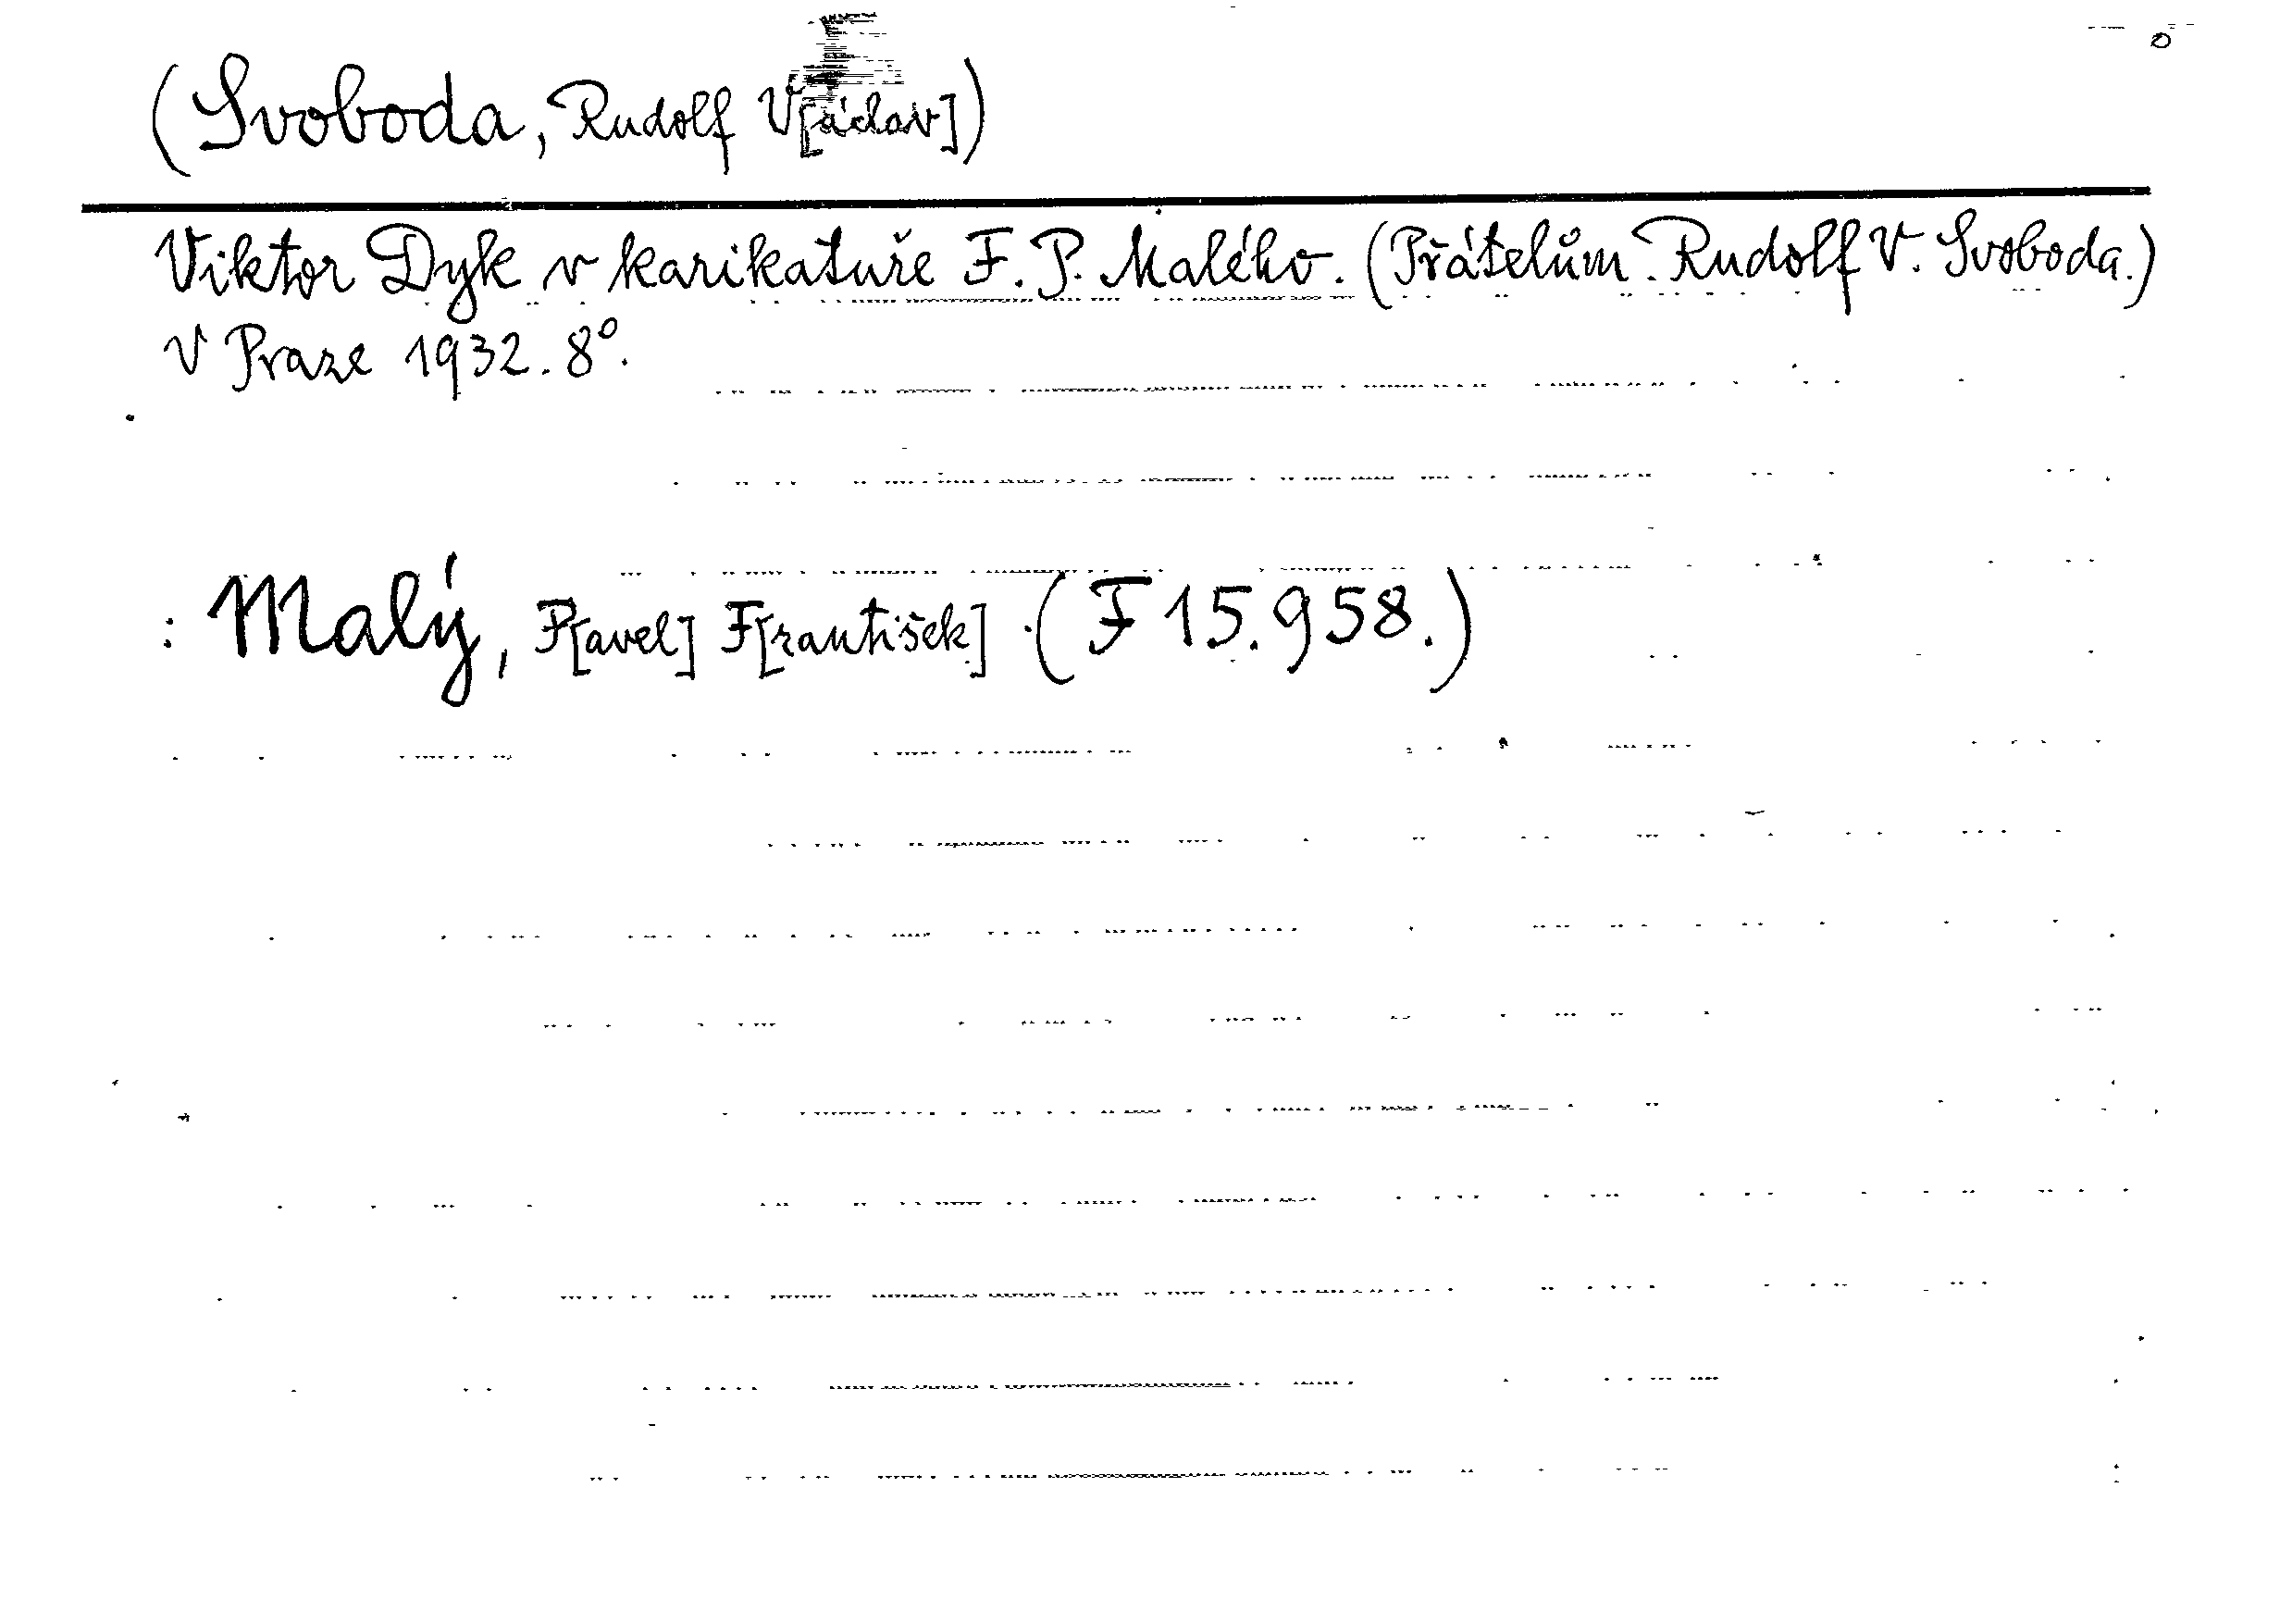 (Svoboda, Rudolf V[áclav])
Viktor Dyk v karikatuře F. P. Malého. (Přátelům Rudolf V. Svoboda.)
V Praze 1932. 8°.
: Malý, P[avel] F[rantišek] (F 15.958.)